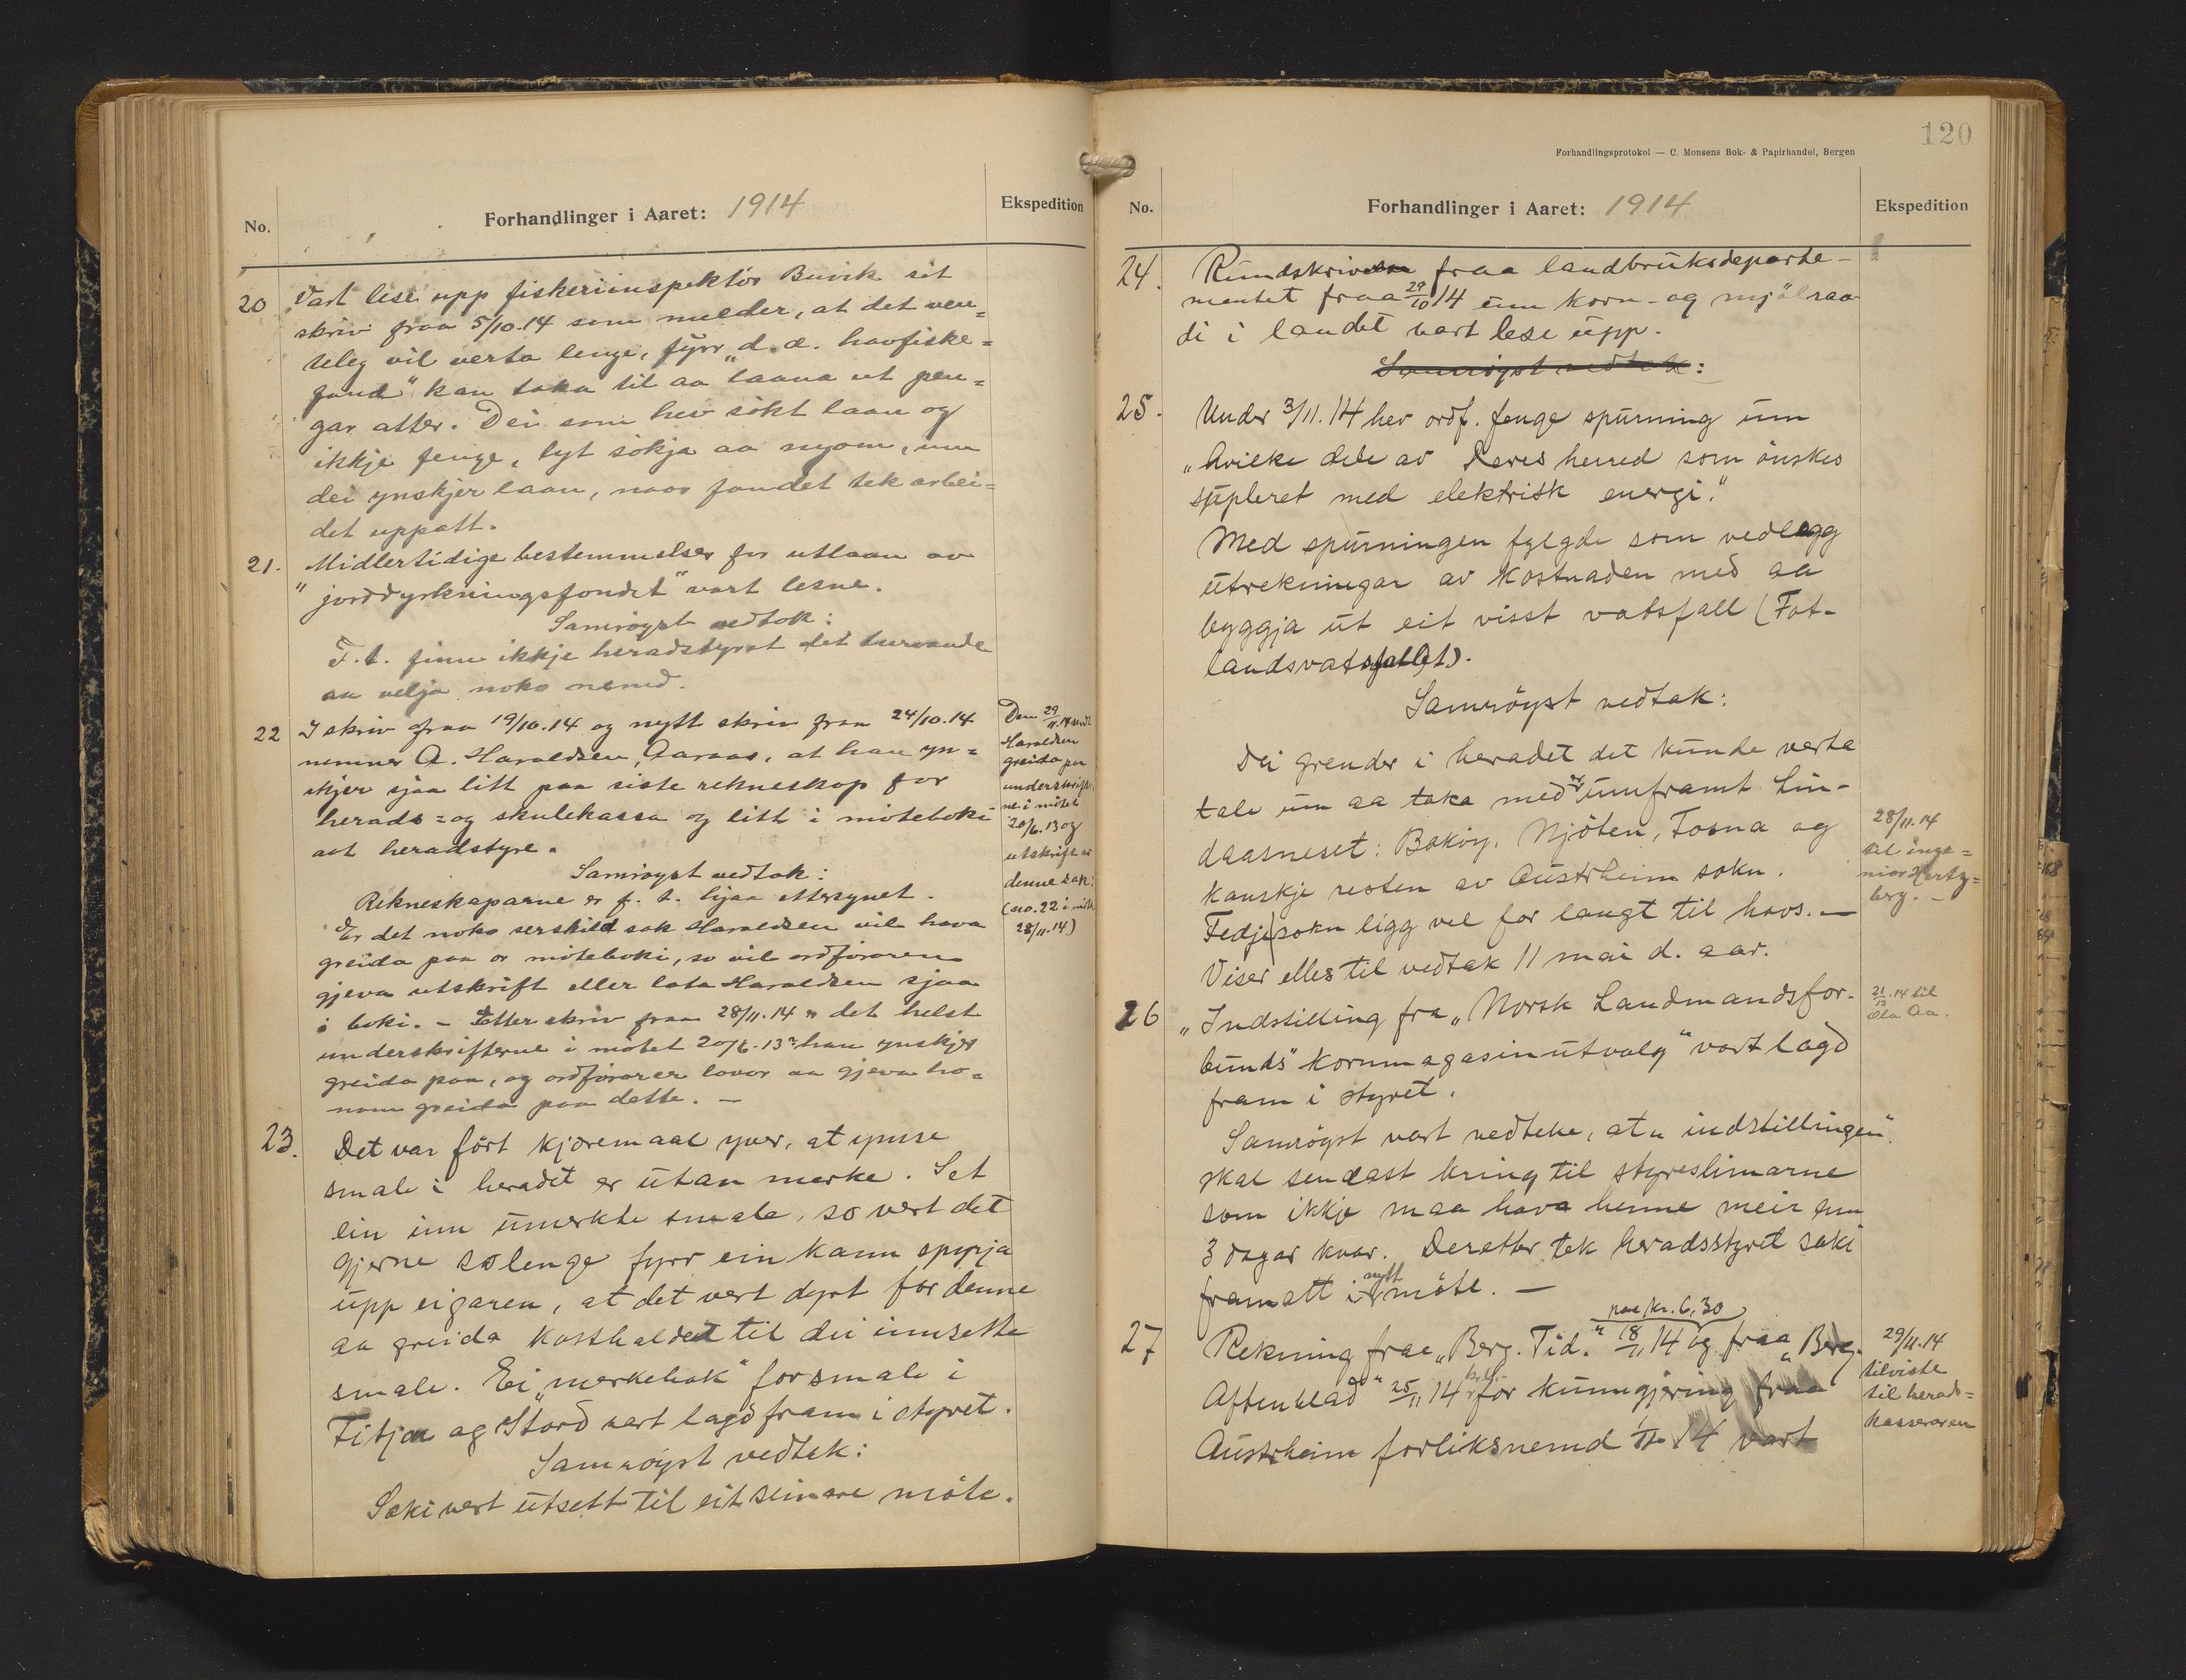 No.
Forhandlinger i Aaret: 1914
Ekspedition
20 Vart lese upp fiskeriinspektör Buvik sit
skriv fraa 5/10.14 som melder, at det ven=
teleg vil verta lenge, fyrr „d. æ. havfiske=
fond" kan taka til aa laana ut pen=
gar atter. Dei som hev sökt laan og
ikkje fenge, lyt sökja aa nyom, um
dei ynskjer laan, naar fondet tek arbei=
det uppatt.
21. Midlertidige bestemmelser for utlaan av
" jorddyrkningsfondet" vart lesne.
Samröyst vedtok:
F.t. finn ikkje heradstyret det turvande
aa velja noko nemd.
22 I skriv fraa 19/10.14 og nytt skriv fraa 24/10.14
nemner A. Haraldsen, Aaraas, at han yn=
skjer sjaa litt paa siste rekneskap for
herads= og skulekassa og litt i möteboki
aat heradstyre.
Samröyst vedtok:
Rekneskaparne er f. t. hjaa ettersynet.
Er det noko serskild sak Haraldsen vil hava
greida paa or möteboki, so vil ordföraren
gjeva utskrift eller lata Haraldsen sjaa
i boki. – Etter skriv fraa 28/11.14 er det helst
underskrifterne i mötet 20/6.13 han ynskjer
greida paa, og ordförarer lovar aa gjeva ho=
nom greida paa dette. –
Den 29/11.14 sendt
Haraldsen
greida paa
underskrift
ne i mötet
20/6.13 og
utskrift av
denne sak:
(no. 22 i möt
28/11.14)
23. Det var fört kjæremaal yver, at ymse
smale i heradet er utan merke. Set
ein inn umerkte smale, so vert det
gjerne so lenge fyrr ein kann spyrja
upp eigaren, at det vert dyrt for denne
aa greida kosthaldet til dei innsette
smale. Ei „merkebok" for smale i
Fitjar og Stord vart lagd fram i styret.
Samröyst vedtak:
Saki vert utsett til eit seinare möte.
120
Forhandlingsprotokol — C. Monsens Bok- & Papirhandel, Bergen
No.
Forhandlinger i Aaret: 1914
Ekspedition
24. Rundskriv fraa landbruksdeparte-
mentet fraa 29/10 14 um korn- og mjölraa
di i landet vart lese upp.
Samröyst vedtak:
25. Under 3/11.14 hev ordf. fenge spurning um
„hvilke dele av Deres herred som önskes
supleret med elektrisk energi."
Med spurningen fylgde som vedlegg
utrekningar av kostnaden med aa
byggja ut eit visst vatsfall (Fot-
landsvatsfallet).
Samröyst vedtak:
Dei grender i heradet det kunde verta
tale um aa taka med er umframt Lin-
daasneset: Baköy, Njöten, Fosna og
kanskje resten av Austrheim sokn.
Fedje sokn ligg vel for langt til havs. —
Viser elles til vedtak 11 mai d. aar.
28/11.14
til inge=
niör Hertz=
berg. –
26 „Indstilling fra „Norsk Landmandsfor-
bunds" kornmagasinutvalg" vart lagd
fram i styret.
Samröyst vart vedteke, at „indstillingen"
skal sendast kring til styreslimarne
som ikkje maa hava henne meir enn
3 dagar kvar. Deretter tek heradsstyret saki
framatt i nytt möte. —
21/12.14 til
Ola Aa.
27 Rekning fraa „Berg. Tid." 18/11 14 og fraa „Berg.
paa kr. 6,30
Aftenblad" 25/11 14 for kunngjering fraa
Austrheim forliksnemd 1/11 14 vart
29/11.14
tilviste
til herads=
kasseraren